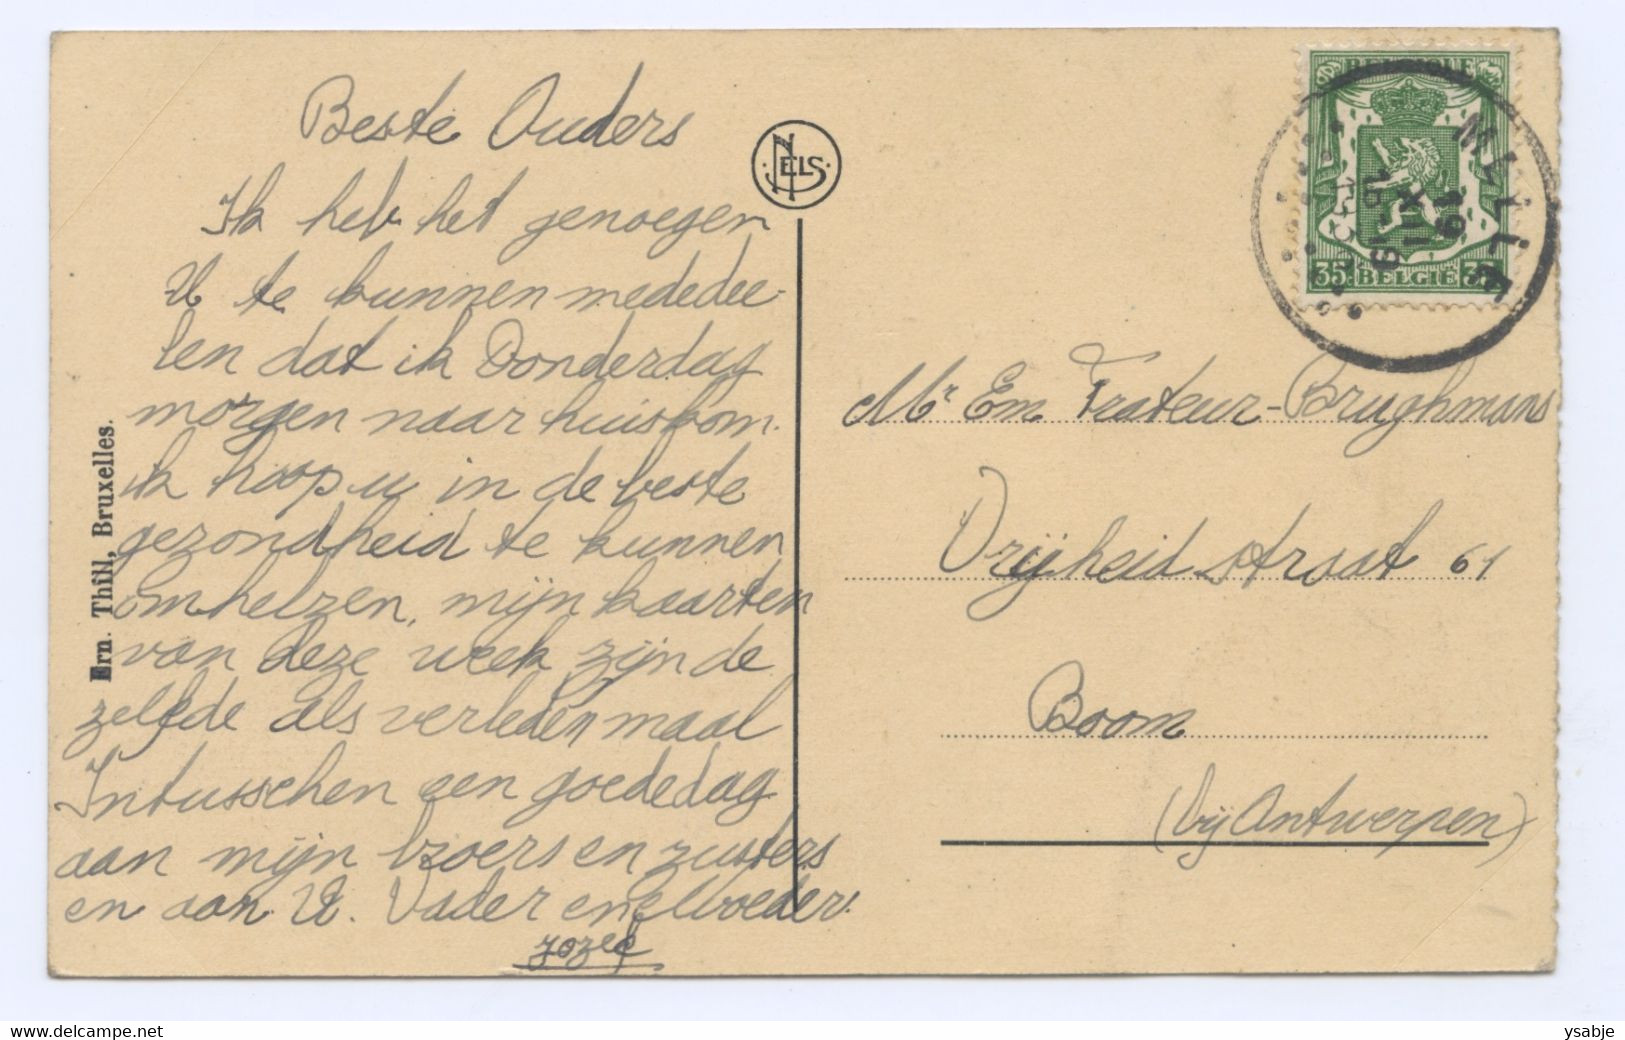 Beste Ouders
Ik heb het genoegen
U te kunnen mededee-
len dat ik Donderdag
morgen naar huis kom.
ik hoop u in de beste
gezondheid te kunnen
omhelzen, mijn kaarten
van deze week zijn de
zelfde als verleden maal
Intusschen een goededag
aan mijn broers en zusters
en aan U. Vader en Moeder.
Jozef
Ern. Thill, Bruxelles.
NELS
BELGIQUE
35 BELGIE 35
19
XII
Mr Em Frateur-Brughmans
Vrijheid straat 61
Boom
(bij Antwerpen)
delcampe.net
ysabje